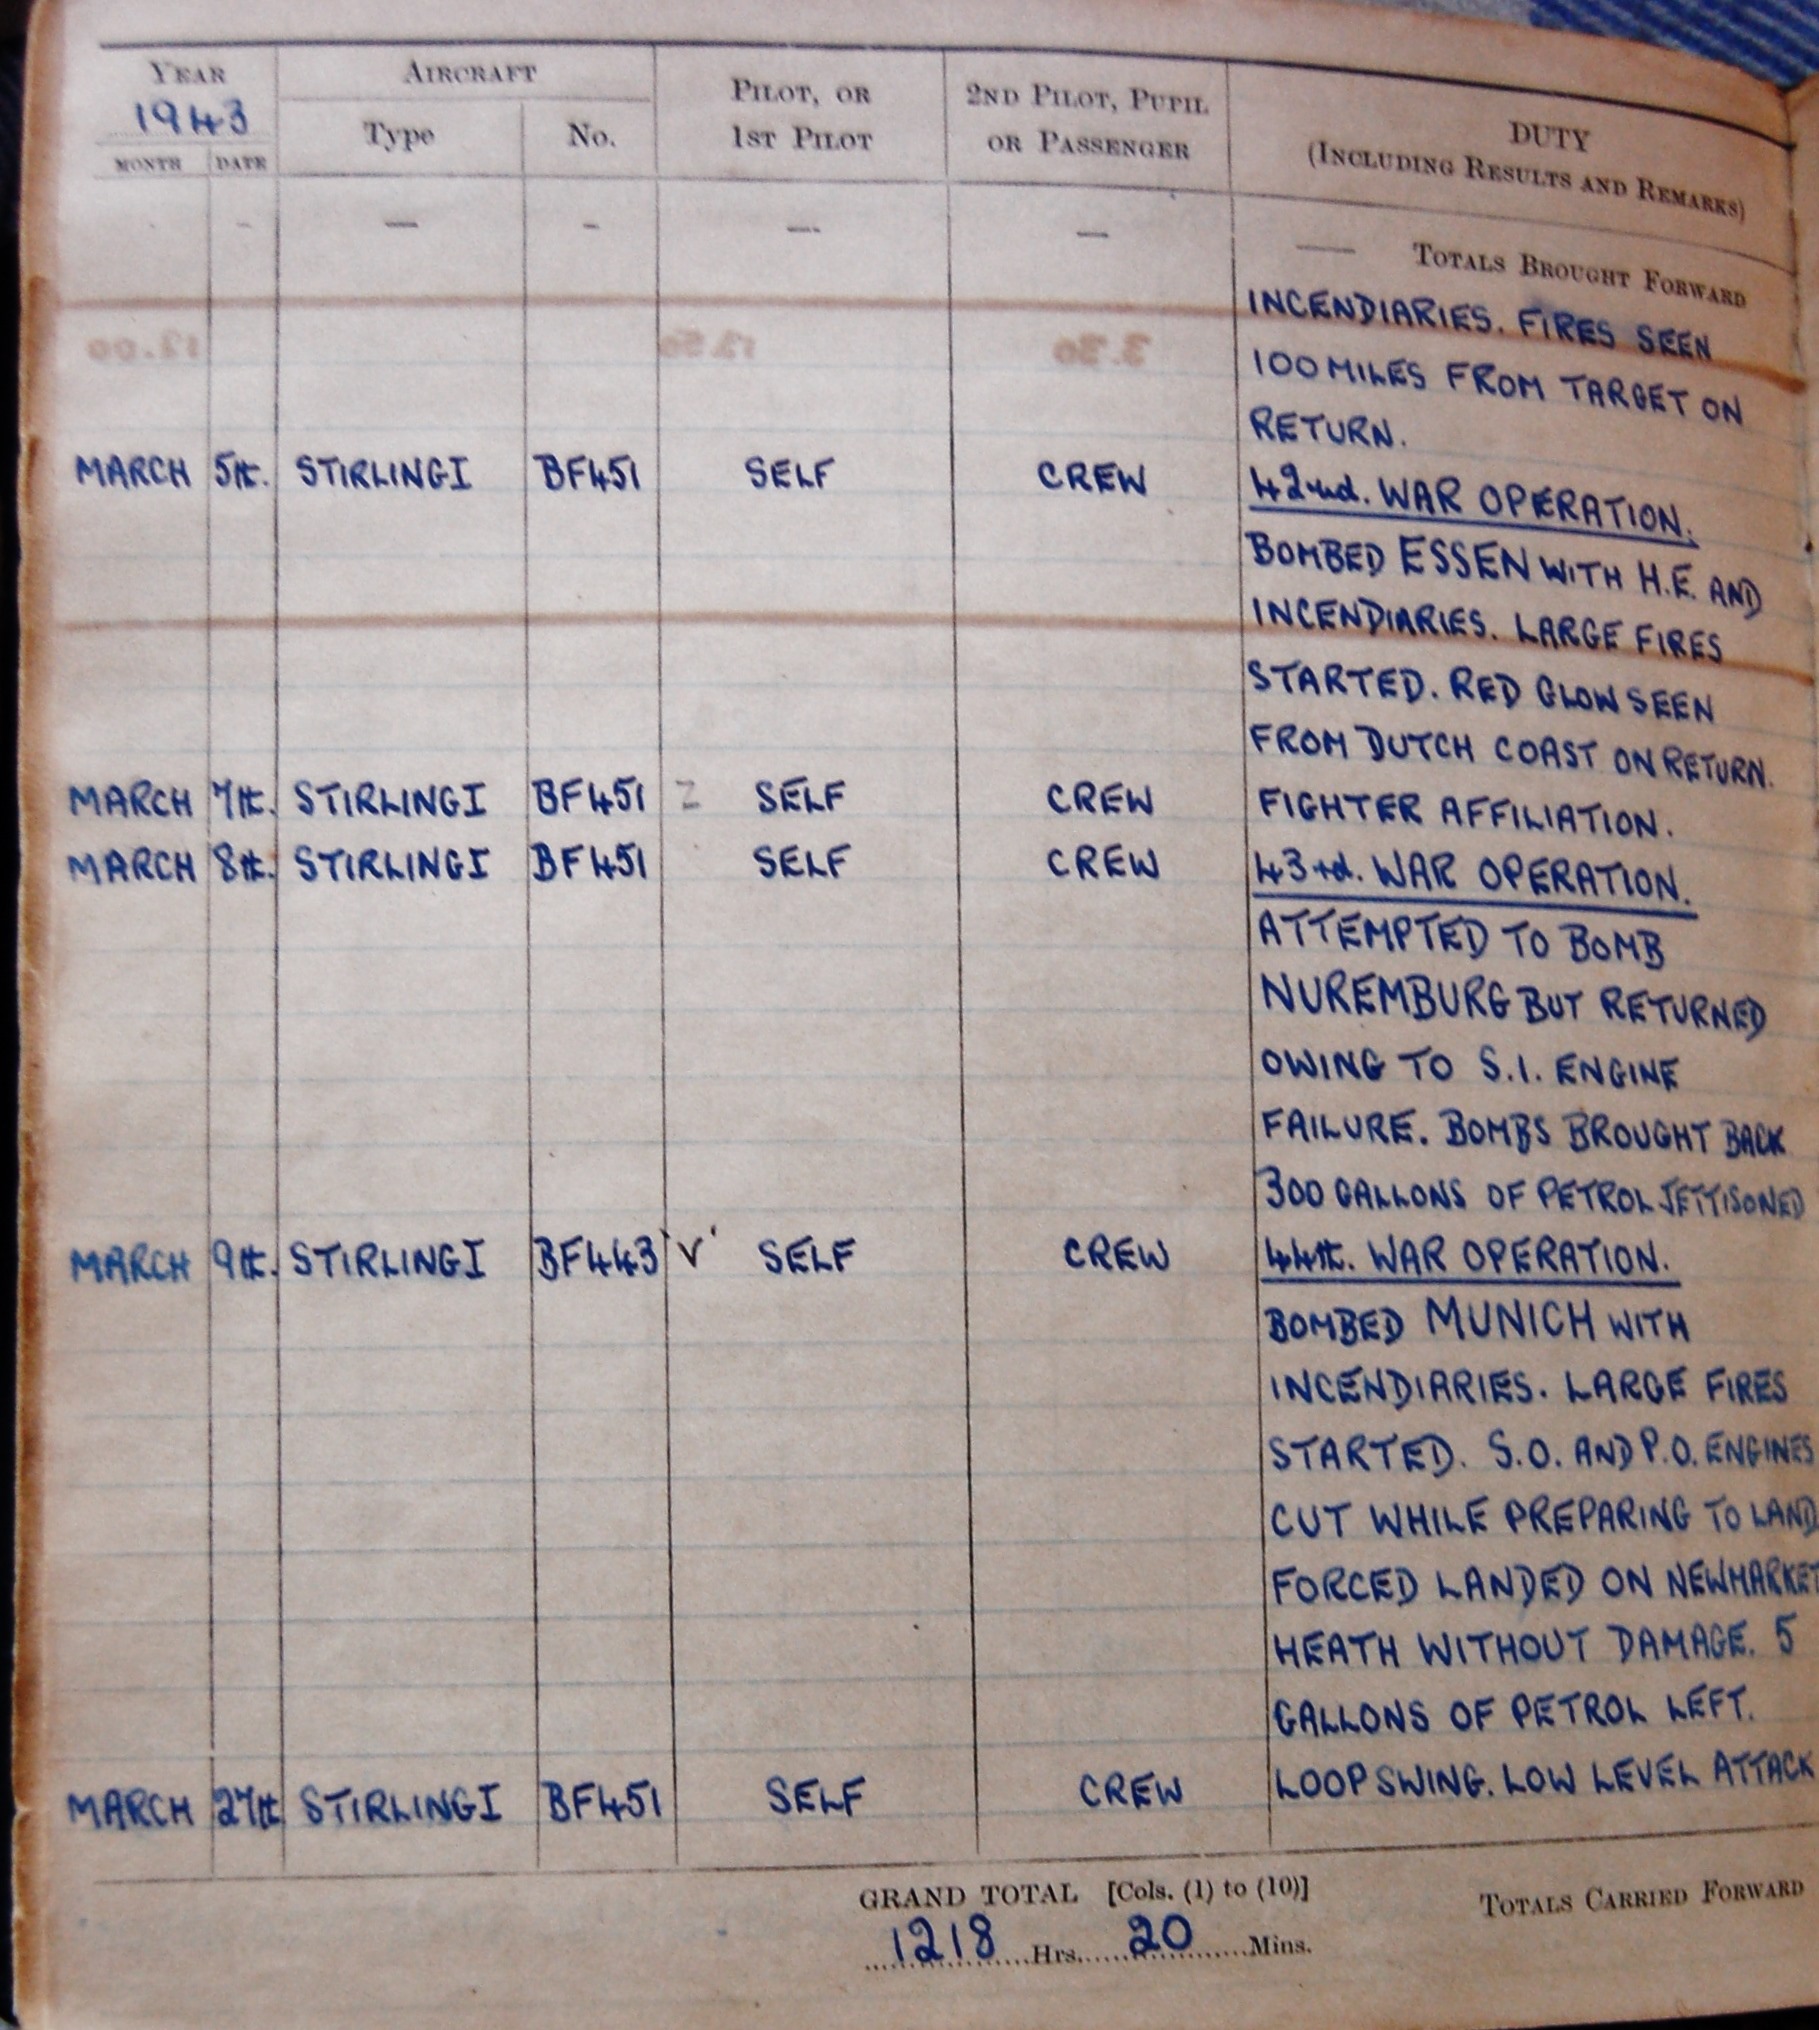 YEAR AIRCRAFT PILOT, OR 2ND PILOT, PUPIL DUTY
1943 Type No. 1ST PILOT OR PASSENGER (INCLUDING RESULTS AND REMARKS)
MONTH DATE
- - — - — — — TOTALS BROUGHT FORWARD
INCENDIARIES. FIRES SEEN
12.00 12.50 3.30
100 MILES FROM TARGET ON
RETURN.
MARCH 5th. STIRLING I BF451 SELF CREW 42nd. WAR OPERATION.
BOMBED ESSEN WITH H.E. AND
INCENDIARIES. LARGE FIRES
STARTED. RED GLOW SEEN
FROM DUTCH COAST ON RETURN.
MARCH 7th. STIRLING I BF451 Z SELF CREW FIGHTER AFFILIATION.
MARCH 8th. STIRLING I BF451 SELF CREW 43rd. WAR OPERATION.
ATTEMPTED TO BOMB
NUREMBURG BUT RETURNED
OWING TO S.I. ENGINE
FAILURE. BOMBS BROUGHT BACK
300 GALLONS OF PETROL JETTISONED
MARCH 9th. STIRLING I BF443 'V' SELF CREW 44th. WAR OPERATION.
BOMBED MUNICH WITH
INCENDIARIES. LARGE FIRES
STARTED. S.O. AND P.O. ENGINES
CUT WHILE PREPARING TO LAND
FORCED LANDED ON NEWMARKET
HEATH WITHOUT DAMAGE. 5
GALLONS OF PETROL LEFT.
MARCH 27th STIRLING I BF451 SELF CREW LOOP SWING. LOW LEVEL ATTACK
GRAND TOTAL [Cols. (1) to (10)] TOTALS CARRIED FORWARD
1218 Hrs. 20 Mins.